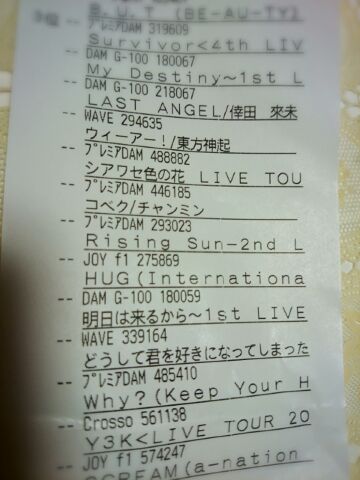 B.U.T (BE-AU-TY)
ﾌﾟﾚﾐｱDAM 319609
Survivor<4th LIV
-- DAM G-100 180067
My Destiny～1st L
-- DAM G-100 218067
LAST ANGEL/倖田 來未
-- WAVE 294635
ウィーアー!/東方神起
-- ﾌﾟﾚﾐｱDAM 488882
シアワセ色の花 LIVE TOU
-- ﾌﾟﾚﾐｱDAM 446185
コベク/チャンミン
-- ﾌﾟﾚﾐｱDAM 293023
Rising Sun-2nd L
-- JOY f1 275869
HUG(Internationa
-- DAM G-100 180059
明日は来るから～1st LIVE
-- WAVE 339164
どうして君を好きになってしまった
-- ﾌﾟﾚﾐｱDAM 485410
Why?(Keep Your H
-- Crosso 561138
Y3K<LIVE TOUR 20
-- JOY f1 574247
SCREAM(a-nation